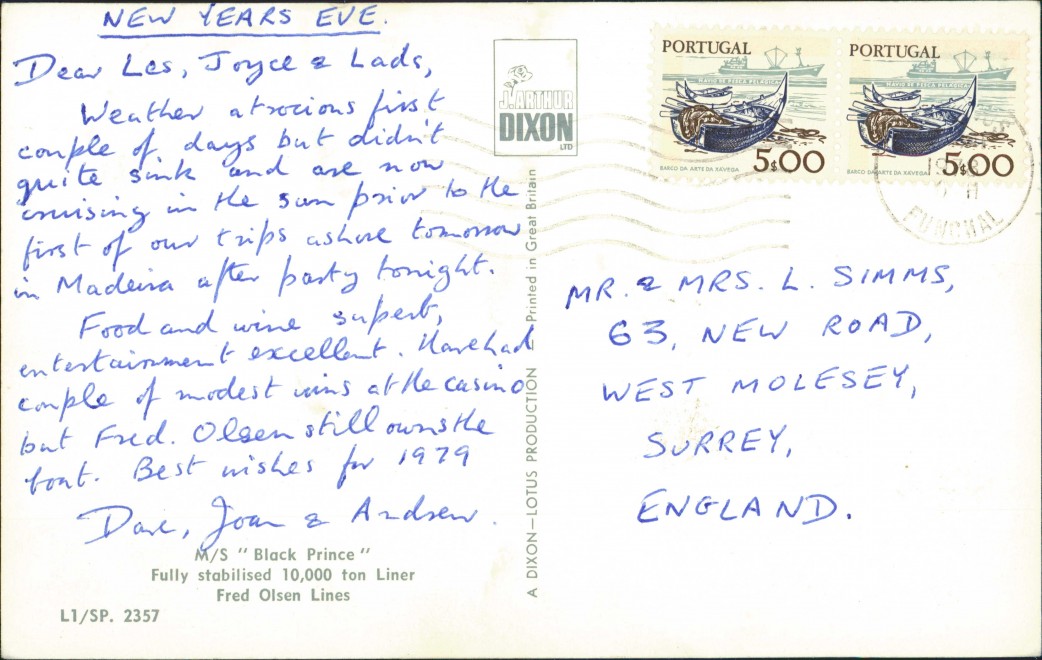 NEW YEARS EVE.
Dear Les, Joyce & Lads,
Weather atrocious first
couple of days but didn't
quite sink and are now
cruising in the sun prior to the
first of our trips ashore tomorrow
in Madeira after party tonight.
Food and wine superb,
entertainment excellent. Have had
couple of modest wins at the casino
but Fred. Olsen still owns the
boat. Best wishes for 1979
Dave, Joan & Andrew.
M/S "Black Prince"
Fully stabilised 10,000 ton Liner
Fred Olsen Lines
L1/SP. 2357
J. ARTHUR
DIXON
LTD
A DIXON—LOTUS PRODUCTION Printed in Great Britain
PORTUGAL
NAVIO DE PESCA PELÁGICA
5$00
BARCO DA ARTE DA XAVEGA
PORTUGAL
NAVIO DE PESCA PELÁGICA
5$00
BARCO DA ARTE DA XAVEGA
FUNCHAL
MR. & MRS. L. SIMMS,
63, NEW ROAD,
WEST MOLESEY,
SURREY,
ENGLAND.